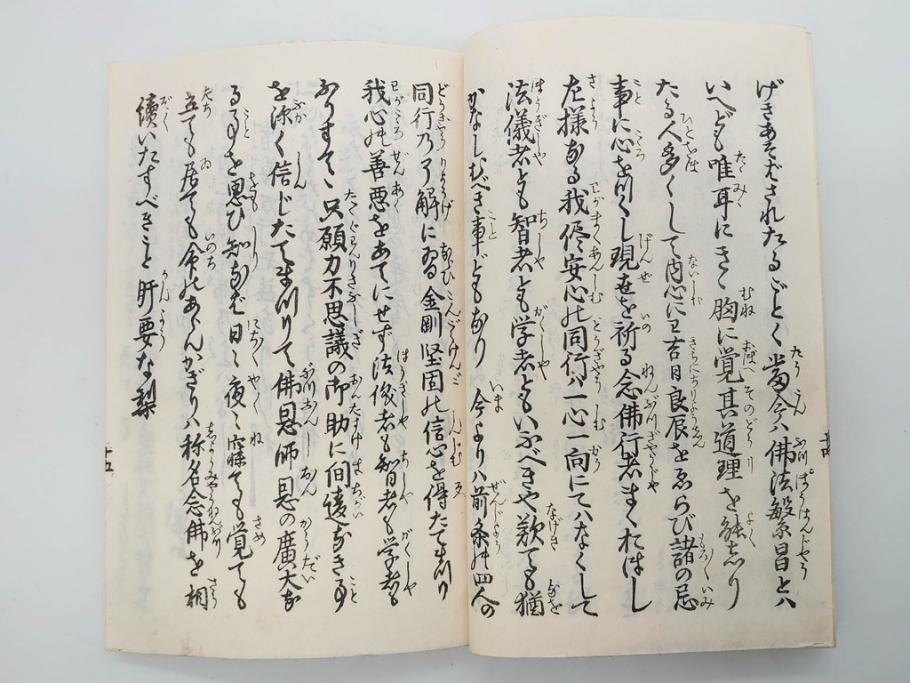 げきあそばされたるごとく当今ハ佛法繁昌とハ
いへども唯耳にきく胸に覚其道理を能しり
たる人多くして内心に吉日良辰をゑらび諸の忌
事に心をつくし現世を祈る念佛行者まゝおほし
左様なる我侭安心の同行ハ一心一向にてハなくして
法儀者とも智者とも学者ともいふべきや歎ても猶
かなしむべき事どもなり今よりハ前条の四人の
同行の了解に習金剛堅固の信心を得たてまつり
我心の善悪をあてにせず法儀者も智者も学者も
ふりすてゝ只願力不思議の御助に間違なき事
を深く信じたてまつりて佛恩師恩の廣大な
る事を思ひ知なば日々夜々寐ても覚ても
立ても居ても命のあらんかぎりハ称名念佛を相
續いたすべきこと肝要な
十五